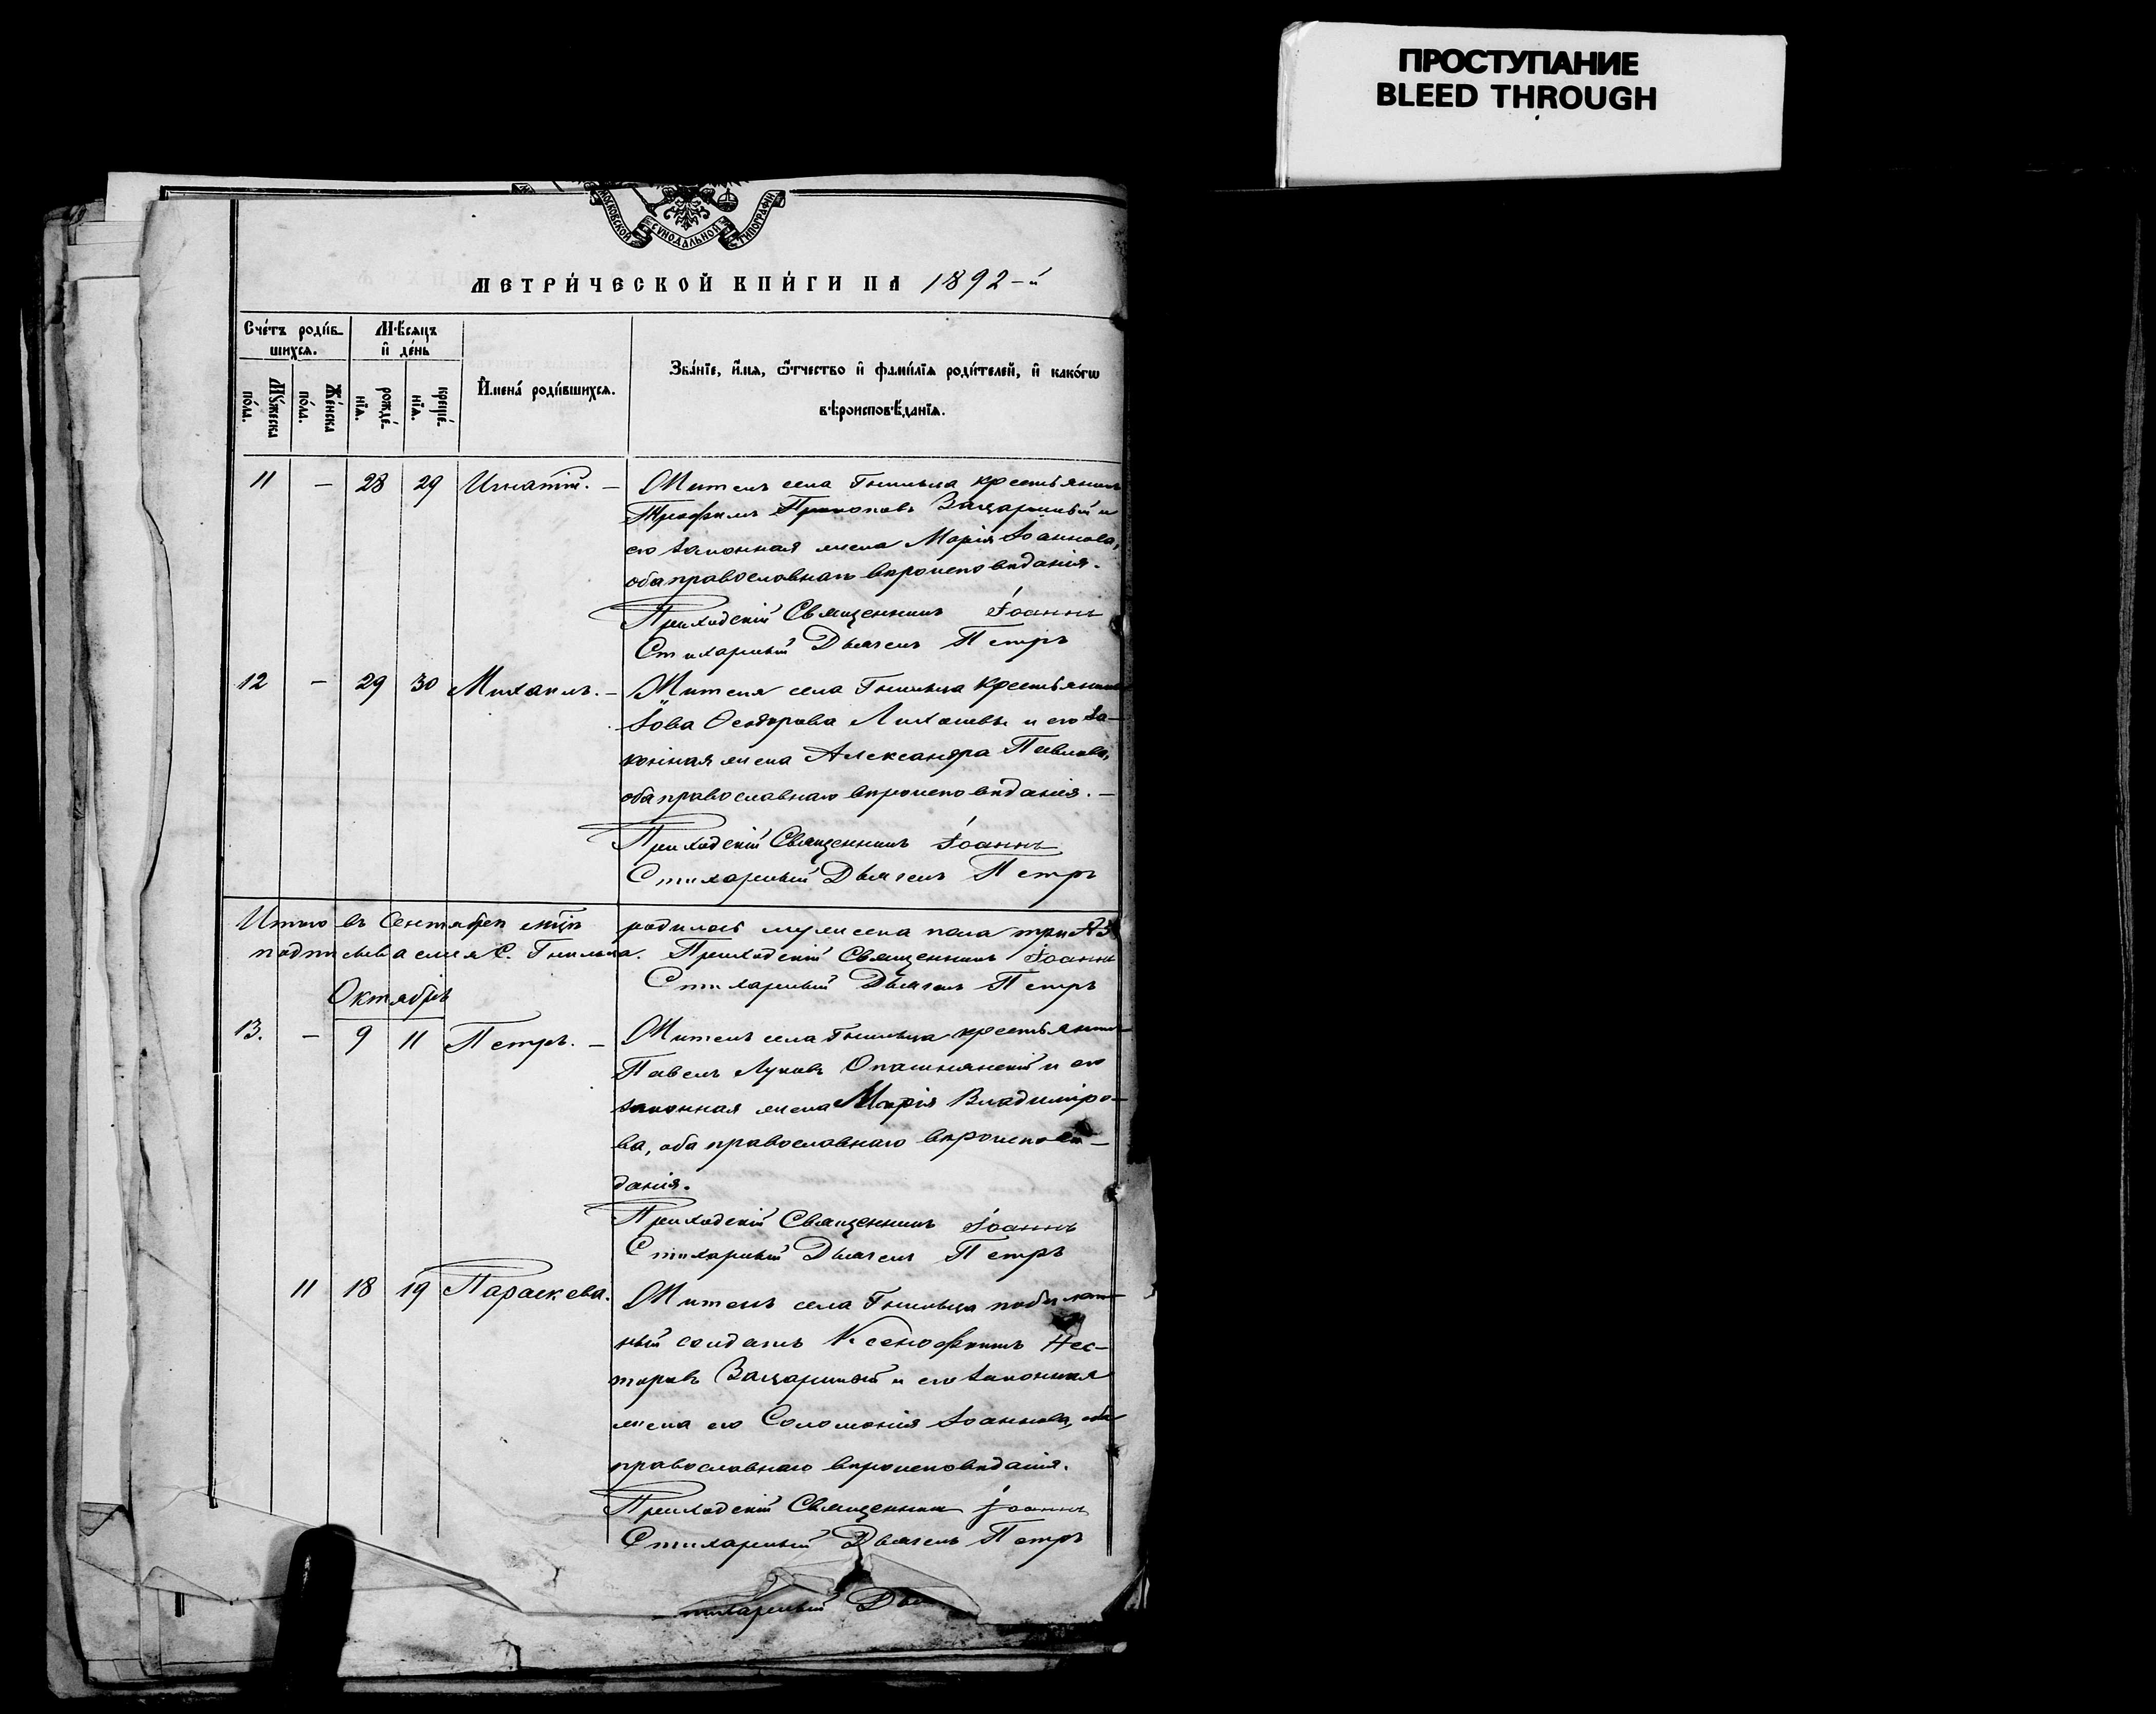 ПРОСТУПАНИЕ
BLEED THROUGH
МОСКОВСКОЙ СѴНОДАЛЬНОЙ ТИПОГРАФІИ
МЕТРИ́ЧЕСКОЙ КНИ́ГИ НА 1892-й
Сче́тъ роди́вшихсѧ.
Мѣ́сѧцъ и҆ де́нь
Мꙋ́жеска по́ла.
Же́нска по́ла.
рожде́нїѧ.
креще́нїѧ.
И҆мена̀ роди́вшихсѧ.
Зва́нїе, и҆́мѧ, ѻ҆́тчество и҆ фамї́лїѧ роди́телей, и҆ како́гѡ
вѣроисповѣ́данїѧ.
11 – 28 29 Игнатій. – Житель села Гнильца крестьянинъ
Трофимъ Прокоповъ и
его законная жена Марія Іоаннова,
оба православнаго вѣроисповѣданія.
Приходскій Священникъ Іоаннъ
Стихарный Дьячекъ Петръ
12 – 29 30 Михаилъ. – Жителя села Гнильца крестьянина
Іова Ѳеодорова и его за-
конная жена Александра Павлова,
оба православнаго вѣроисповѣданія. –
Приходскій Священникъ Іоаннъ
Стихарный Дьячекъ Петръ
Итого въ Сентябрѣ мѣсцѣ родилось мужеска пола три
Приходскій Священникъ Іоаннъ
Стихарный Дьячекъ Петръ
Октябрь
13. – 9 11 Петръ. – Житель села Гнильца крестьянинъ
Павелъ Луковъ и его
законная жена Марія Владиміро-
ва, оба православнаго вѣроисповѣ-
данія.
Приходскій Священникъ Іоаннъ
Стихарный Дьячекъ Петръ
11 18 19 Параскева. Житель села Гнильца
солдатъ Ксенофонтъ Нес-
торовъ и его законная
жена его Соломонія Іоаннова, оба
православнаго вѣроисповѣданія.
Приходскій Священникъ Іоаннъ
Стихарный Дьячекъ Петръ